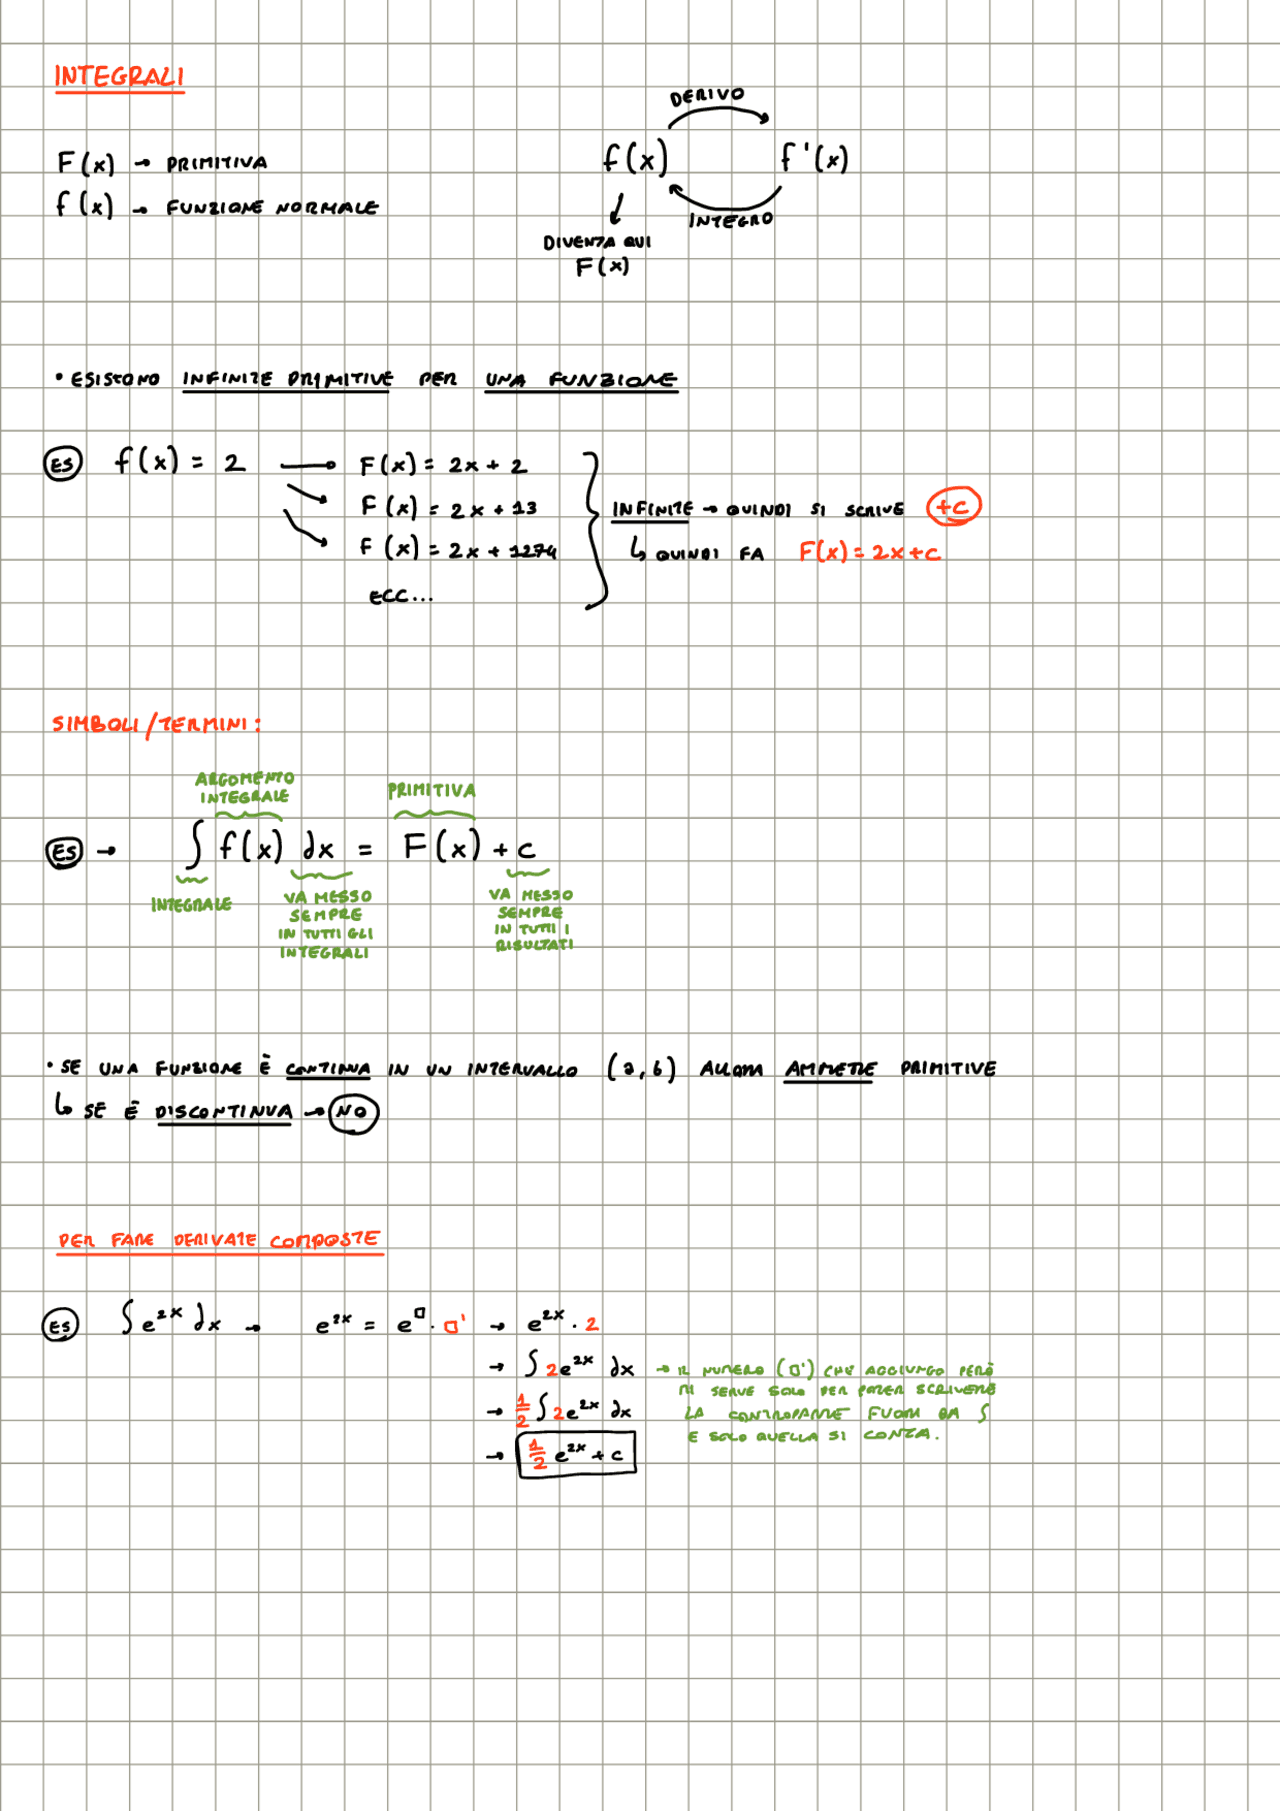 INTEGRALI
DERIVO
F(x) → PRIMITIVA
f(x) f'(x)
f(x) → FUNZIONE NORMALE
INTEGRO
DIVENTA QUI
F(x)
• ESISTONO INFINITE PRIMITIVE PER UNA FUNZIONE
ES f(x) = 2 → F(x) = 2x + 2
F(x) = 2x + 13
INFINITE → QUINDI SI SCRIVE +C
F(x) = 2x + 1274
↳ QUINDI FA F(x) = 2x+c
ECC...
SIMBOLI/TERMINI:
ARGOMENTO
INTEGRALE
PRIMITIVA
ES → ∫ f(x) dx = F(x) + c
INTEGRALE
VA MESSO
SEMPRE
IN TUTTI GLI
INTEGRALI
VA MESSO
SEMPRE
IN TUTTI I
RISULTATI
• SE UNA FUNZIONE È CONTINUA IN UN INTERVALLO (a,b) ALLORA AMMETTE PRIMITIVE
↳ SE È DISCONTINUA → NO
PER FARE DERIVATE COMPOSTE
ES ∫e²ˣ dx → e²ˣ = e^□ · □' → e²ˣ · 2
→ ∫2e²ˣ dx → IL NUMERO (□') CHE AGGIUNGO PERÒ
MI SERVE SOLO PER POTER SCRIVERE
→ 1/2 ∫2e²ˣ dx
LA CONTROPARTE FUORI DA ∫
E SOLO QUELLA SI CONTA.
→ 1/2 e²ˣ + c